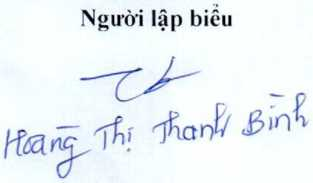 Người lập biểu
Hoàng Thị Thanh Bình